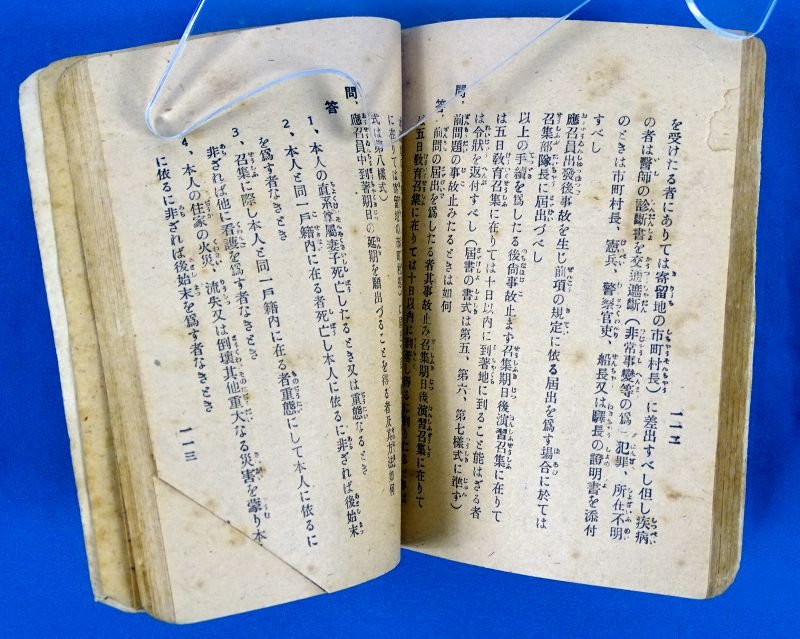 を受けたる者にありては寄留地の市町村長)に差出すべし但し疾病
の者は醫師の診斷書を交通遮斷(非常事變等の爲)犯罪、所在不明
のときは市町村長、憲兵、警察官吏、船長又は驛長の證明書を添付
すべし
應召員出發後事故を生じ前項の規定に依る屆出を爲す場合に於ては
召集部隊長に屆出づべし
以上の手續を爲したる後尙事故止まず召集期日後演習召集に在りて
は五日敎育召集に在りては十日以內に到著地に到ること能はざる者
は令狀を返付すべし(屆書の書式は第五、第六、第七樣式に準ず)
問、前問題の事故止みたるときは如何
答、前問の屆出を爲したる者其事故止み召集期日後演習召集に在りて
は五日敎育召集に在りては十日以內に到著し得るに
一一二
に在りては寄留地の市町村長
式は第八樣式)
問、應召員中到著期日の延期を願出づることを得る者及其方法如何
答
1、本人の直系尊屬妻子死亡したるとき又は重態なるとき
2、本人と同一戶籍內に在る者死亡し本人に依るに非ざれば後始末
を爲す者なきとき
3、召集に際し本人と同一戶籍內に在る者重態にして本人に依るに
非ざれば他に看護を爲す者なきとき
4、本人の住家の火災、流失又は倒壞其他重大なる災害を蒙り本
に依るに非ざれば後始末を爲す者なきとき
一一三